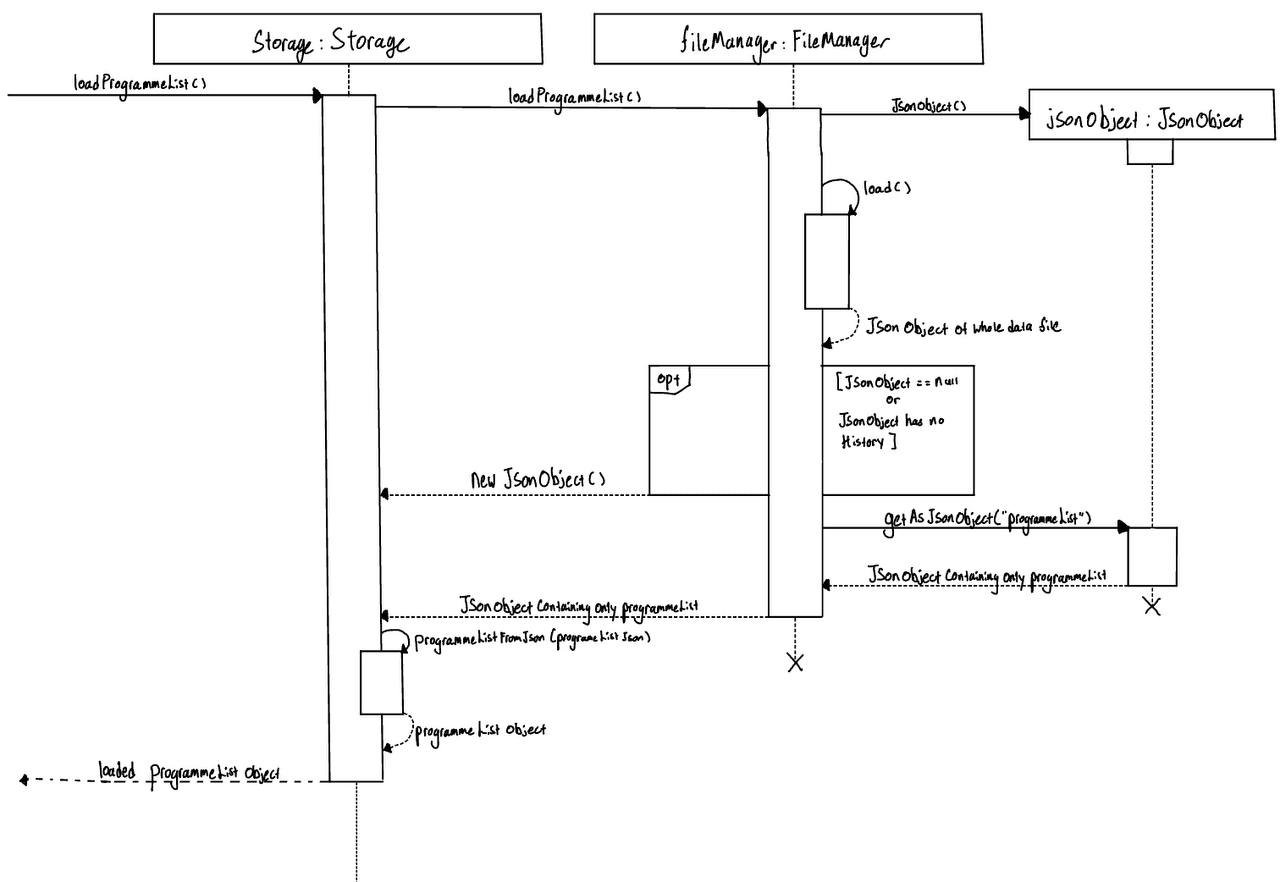 Storage : Storage
fileManager : FileManager
loadProgrammeList()
loadProgrammeList()
JsonObject()
jsonObject : JsonObject
load()
JsonObject of whole data file
opt
[JsonObject == null
or
JsonObject has no
History]
new JsonObject()
getAsJsonObject("programmeList")
JsonObject containing only programmeList
JsonObject containing only programmeList
programmeListFromJson(programeListJson)
programmeList object
loaded ProgrammeList Object